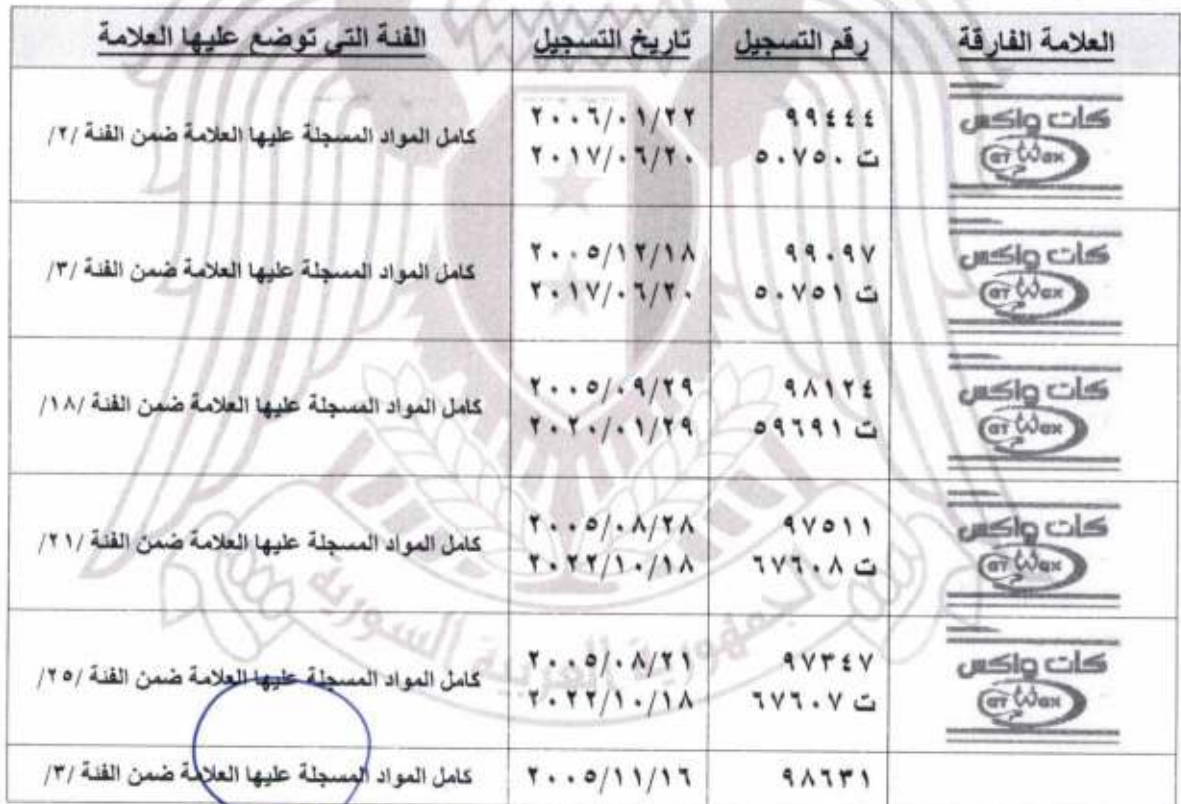 العلامة الفارقة رقم التسجيل تاريخ التسجيل الفئة التي توضع عليها العلامة
كات واكس
CAT Wax
٩٩٤٤٤ ٢٠٠٦/٠١/٢٢
ت ٥٠٧٥٠ ٢٠١٧/٠٦/٢٠
كامل المواد المسجلة عليها العلامة ضمن الفئة /٢/
كات واكس
CAT Wax
٩٩٠٩٧ ٢٠٠٥/١٢/١٨
ت ٥٠٧٥١ ٢٠١٧/٠٦/٢٠
كامل المواد المسجلة عليها العلامة ضمن الفئة /٣/
كات واكس
CAT Wax
٩٨١٢٤ ٢٠٠٥/٠٩/٢٩
ت ٥٩٦٩١ ٢٠٢٠/٠١/٢٩
كامل المواد المسجلة عليها العلامة ضمن الفئة /١٨/
كات واكس
CAT Wax
٩٧٥١١ ٢٠٠٥/٠٨/٢٨
ت ٦٧٦٠٨ ٢٠٢٢/١٠/١٨
كامل المواد المسجلة عليها العلامة ضمن الفئة /٢١/
كات واكس
CAT Wax
٩٧٣٤٧ ٢٠٠٥/٠٨/٢١
ت ٦٧٦٠٧ ٢٠٢٢/١٠/١٨
كامل المواد المسجلة عليها العلامة ضمن الفئة /٢٥/
٩٨٦٣١ ٢٠٠٥/١١/١٦ كامل المواد المسجلة عليها العلامة ضمن الفئة /٣/
الجمهورية العربية السورية